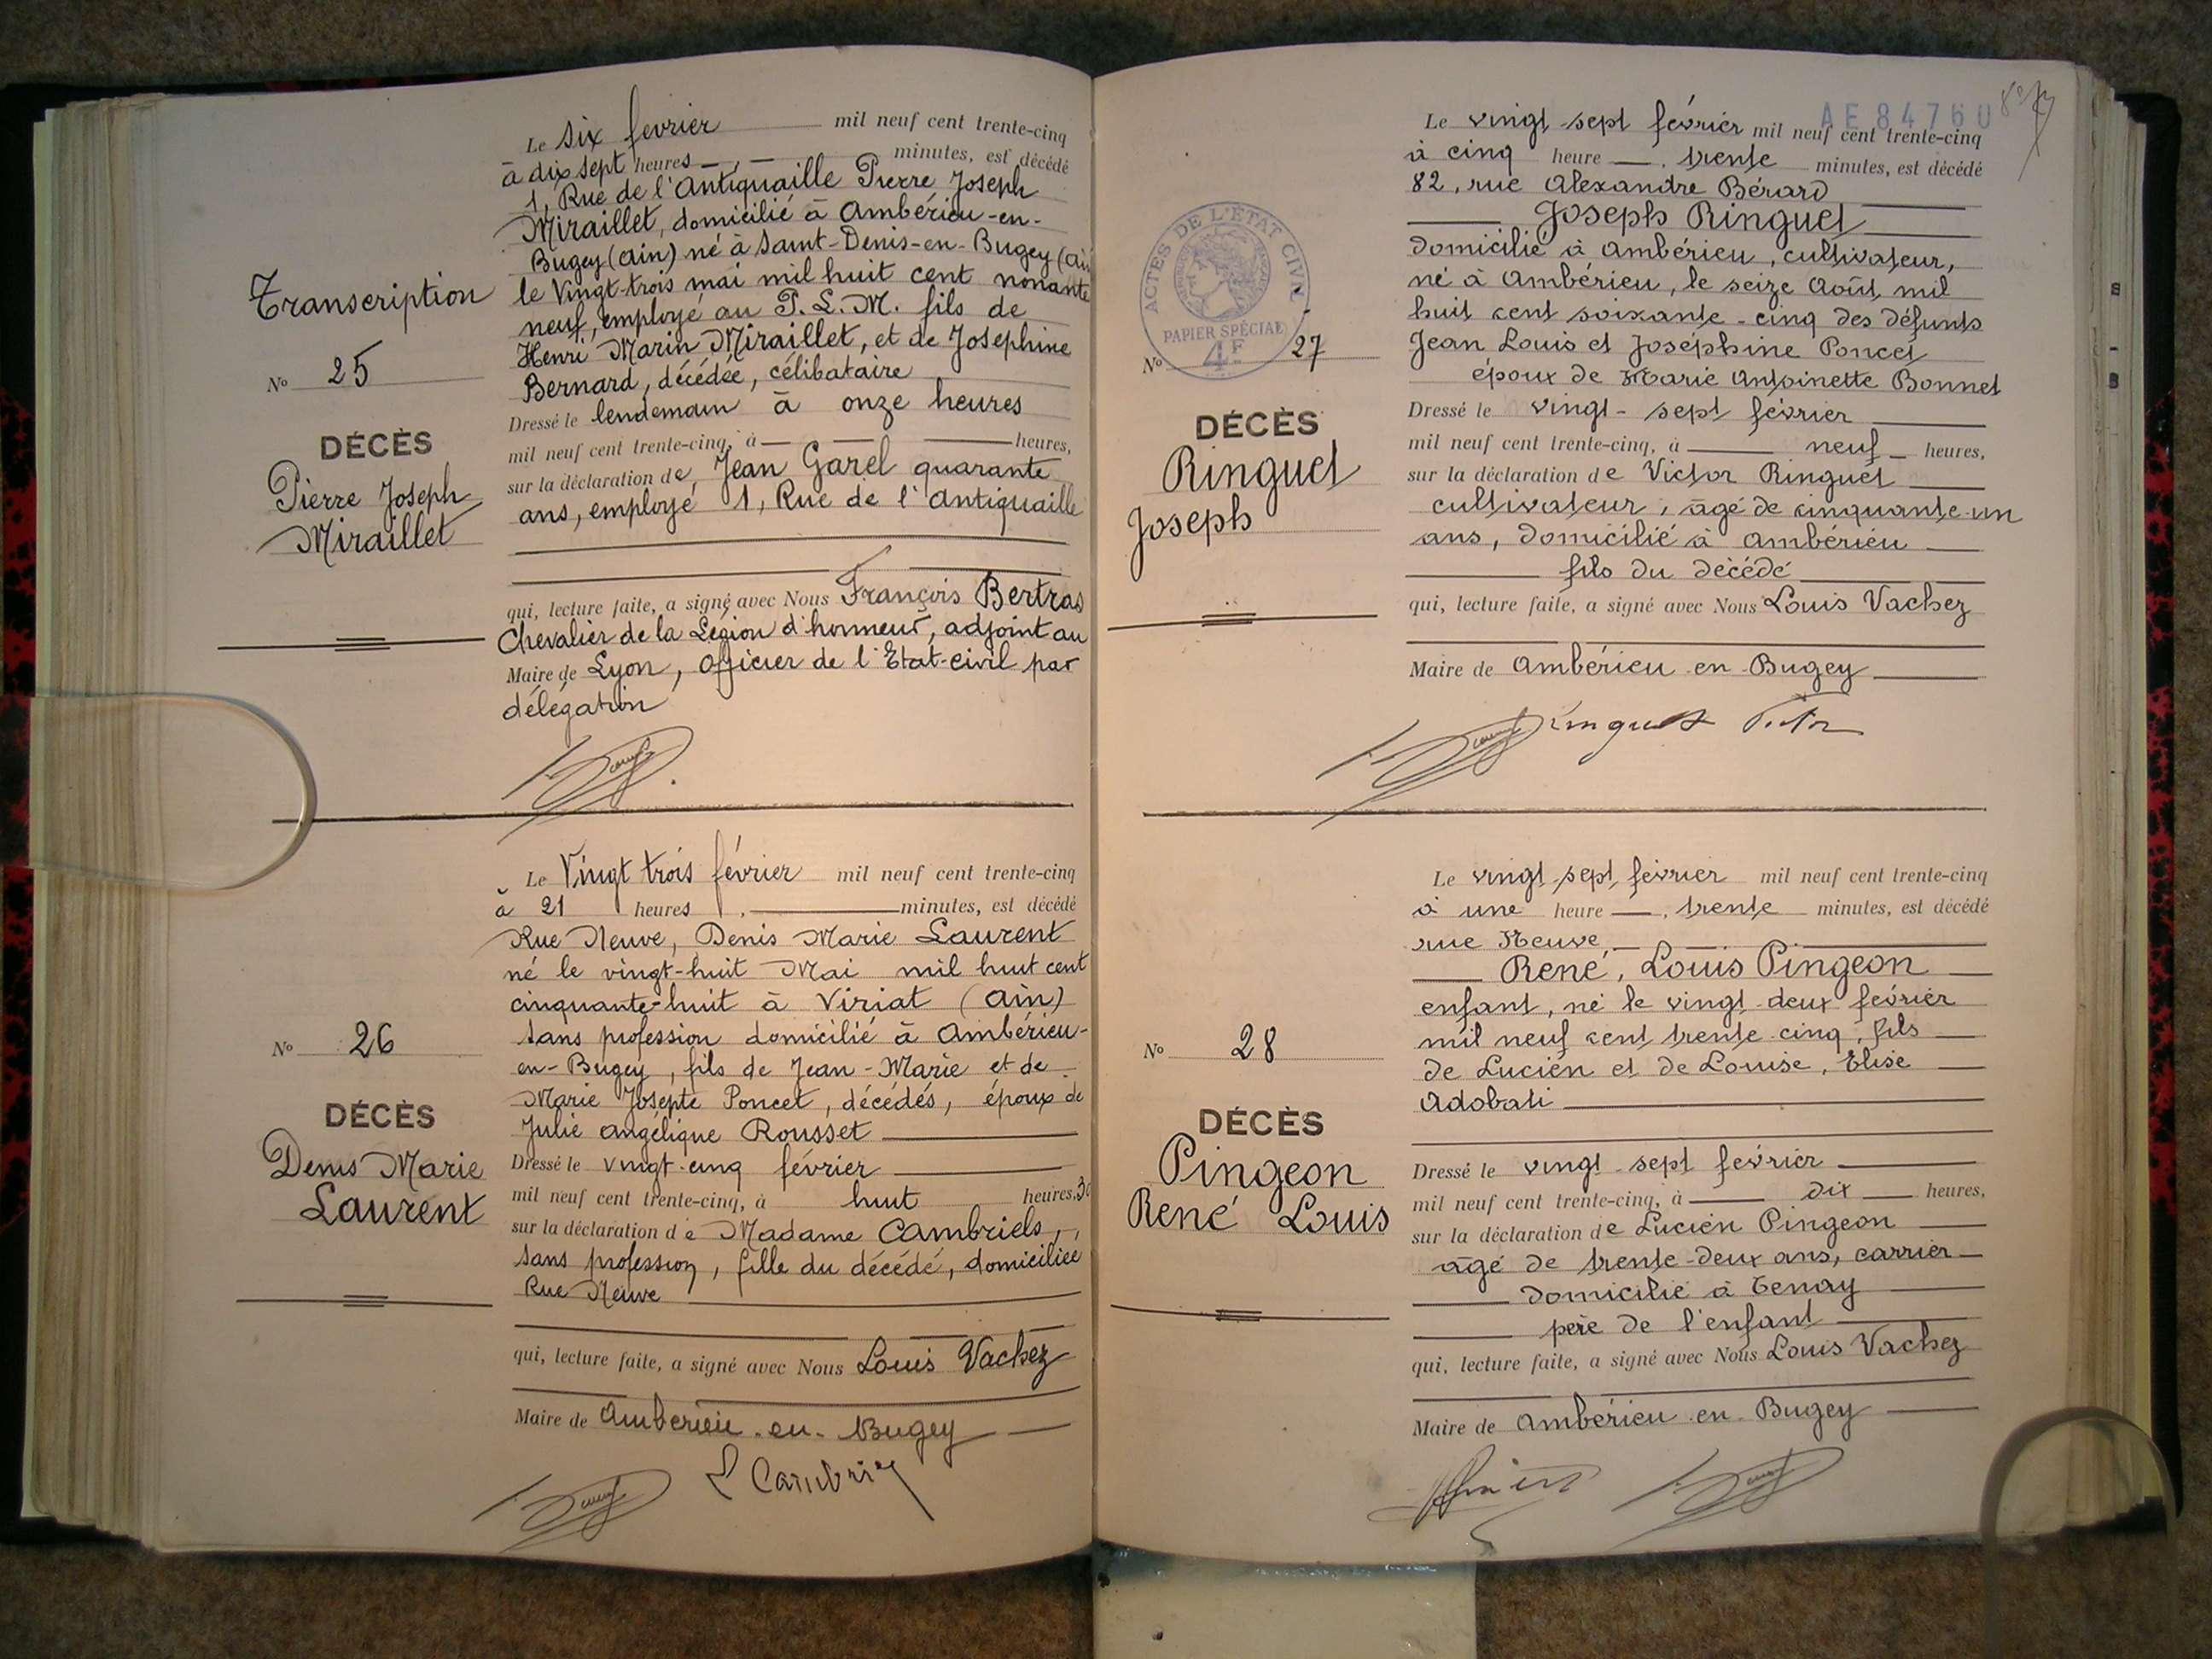 Transcription
N° 25
DÉCÈS
Pierre Joseph
Miraillet
Le six fevrier mil neuf cent trente-cinq
à dix sept heures minutes, est décédé
1, Rue de l'Antiquaille Pierre Joseph
Miraillet, domicilié à Ambérieu-en-
Bugey (Ain) né à Saint-Denis-en-Bugey (Ain
le Vingt-trois mai mil huit cent nonante
neuf, employé au P.L.M. fils de
Henri Marin Miraillet, et de Josephine
Bernard, décédée, célibataire
Dressé le lendemain à onze heures
mil neuf cent trente-cinq, à heures,
sur la déclaration de Jean Garel quarante
ans, employé 1, Rue de l'Antiquaille
qui, lecture faite, a signé avec Nous François Bertras
Chevalier de la Légion d'honneur, adjoint au
Maire de Lyon, Officier de l'Etat-civil par
délégation
N° 26
DÉCÈS
Denis Marie
Laurent
Le Vingt trois février mil neuf cent trente-cinq
à 21 heures, minutes, est décédé
Rue Neuve, Denis Marie Laurent
né le vingt-huit Mai mil huit cent
cinquante-huit à Viriat (Ain)
sans profession domicilié à Ambérieu-
en-Bugey, fils de Jean-Marie et de
Marie Josepte Poncet, décédés, époux de
Julie Angélique Rousset
Dressé le vingt-cinq février
mil neuf cent trente-cinq, à huit heures, 30
sur la déclaration de Madame Cambriels,
sans profession, fille du décédé, domiciliée
Rue Neuve
qui, lecture faite, a signé avec Nous Louis Vachez
Maire de Ambérieu-en-Bugey
AE 84760
ACTES DE L'ÉTAT CIVIL
PAPIER SPÉCIAL
4F
N° 27
DÉCÈS
Ringuet
Joseph
Le vingt-sept février mil neuf cent trente-cinq
à cinq heure, trente minutes, est décédé
82, rue Alexandre Bérard
Joseph Ringuet
domicilié à Ambérieu, cultivateur,
né à Ambérieu, le seize Août mil
huit cent soixante-cinq des défunts
Jean Louis et Joséphine Poncet
époux de Marie Antoinette Bonnet
Dressé le vingt-sept février
mil neuf cent trente-cinq, à neuf heures,
sur la déclaration de Victor Ringuet
cultivateur, âgé de cinquante-un
ans, domicilié à Ambérieu
fils du décédé
qui, lecture faite, a signé avec Nous Louis Vachez
Maire de Ambérieu-en-Bugey
Ringuet Victor
N° 28
DÉCÈS
Pingeon
René Louis
Le vingt-sept février mil neuf cent trente-cinq
à une heure, trente minutes, est décédé
rue Neuve,
René, Louis Pingeon
enfant, né le vingt-deux février
mil neuf cent trente-cinq, fils
de Lucien et de Louise, Elise
Adobati
Dressé le vingt-sept février
mil neuf cent trente-cinq, à dix heures,
sur la déclaration de Lucien Pingeon
âgé de trente-deux ans, carrier
domicilié à Tenay
père de l'enfant
qui, lecture faite, a signé avec Nous Louis Vachez
Maire de Ambérieu-en-Bugey